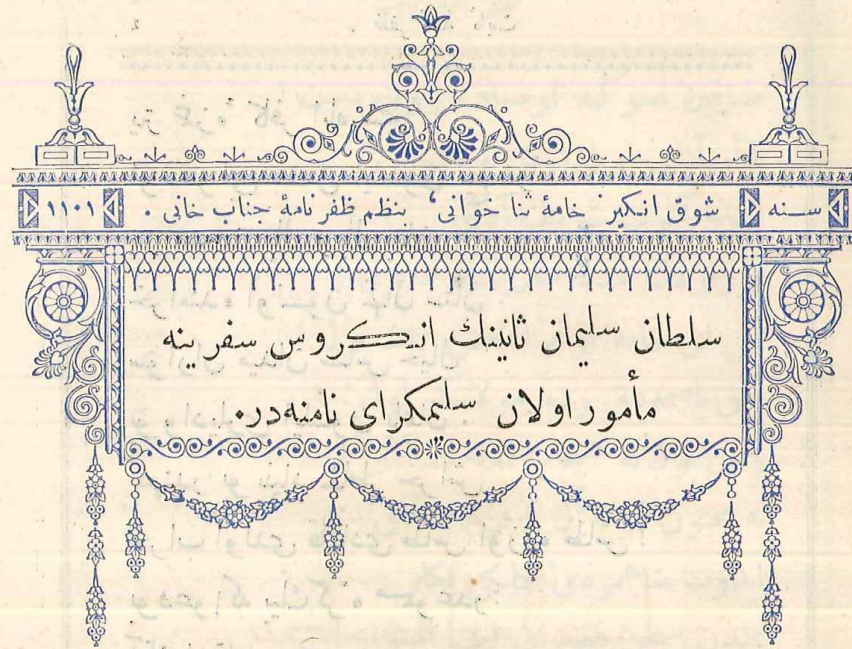 سنه ١١٠١ شوق انكیز خامهٔ ثنا خوانی، بنظم ظفرنامهٔ جناب خانی .
سلطان سلیمان ثانینك انكروس سفرینه
مأمور اولان سلیمكرای نامنه‌در.